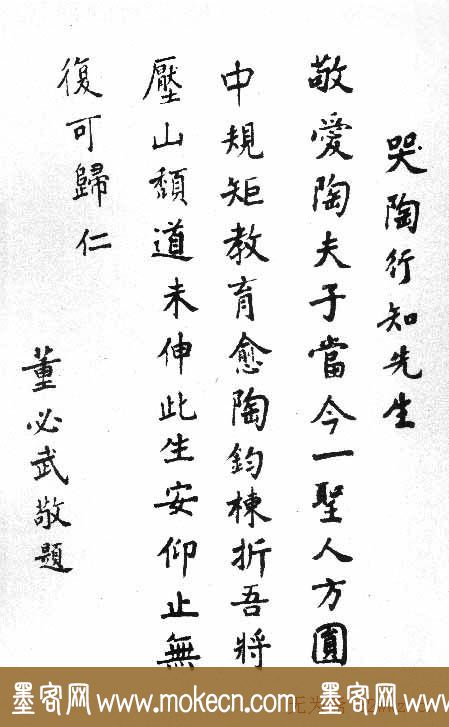 哭陶行知先生
敬愛陶夫子當今一聖人方圓
中規矩教育愈陶鈞棟折吾將
壓山頹道未伸此生安仰止無
復可歸仁
董必武敬題
墨客网 www.mokecn.com 墨客网 www.